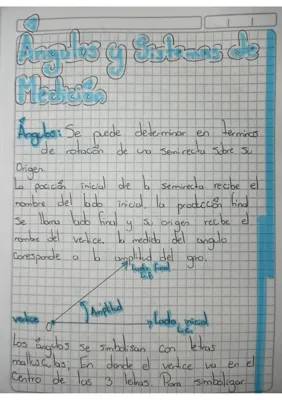 Ángulos y Sistemas de
Medición
Ángulos: Se puede determinar en terminos
de rotación de una semirecta sobre su
Origen.
La posición inicial de la semirecta recibe el
nombre del lado inicial, la producción final
se llama lado final y su origen recibe el
nombre del vertice. la medida del angulo
Corresponde a la amplitud del giro.
Lado final
Amplitud
vertice
Lado inicial
Los ángulos se simbolisan con letras
mallusculas, En donde el vertice va en el
Centro de las 3 letras. Para simboligar